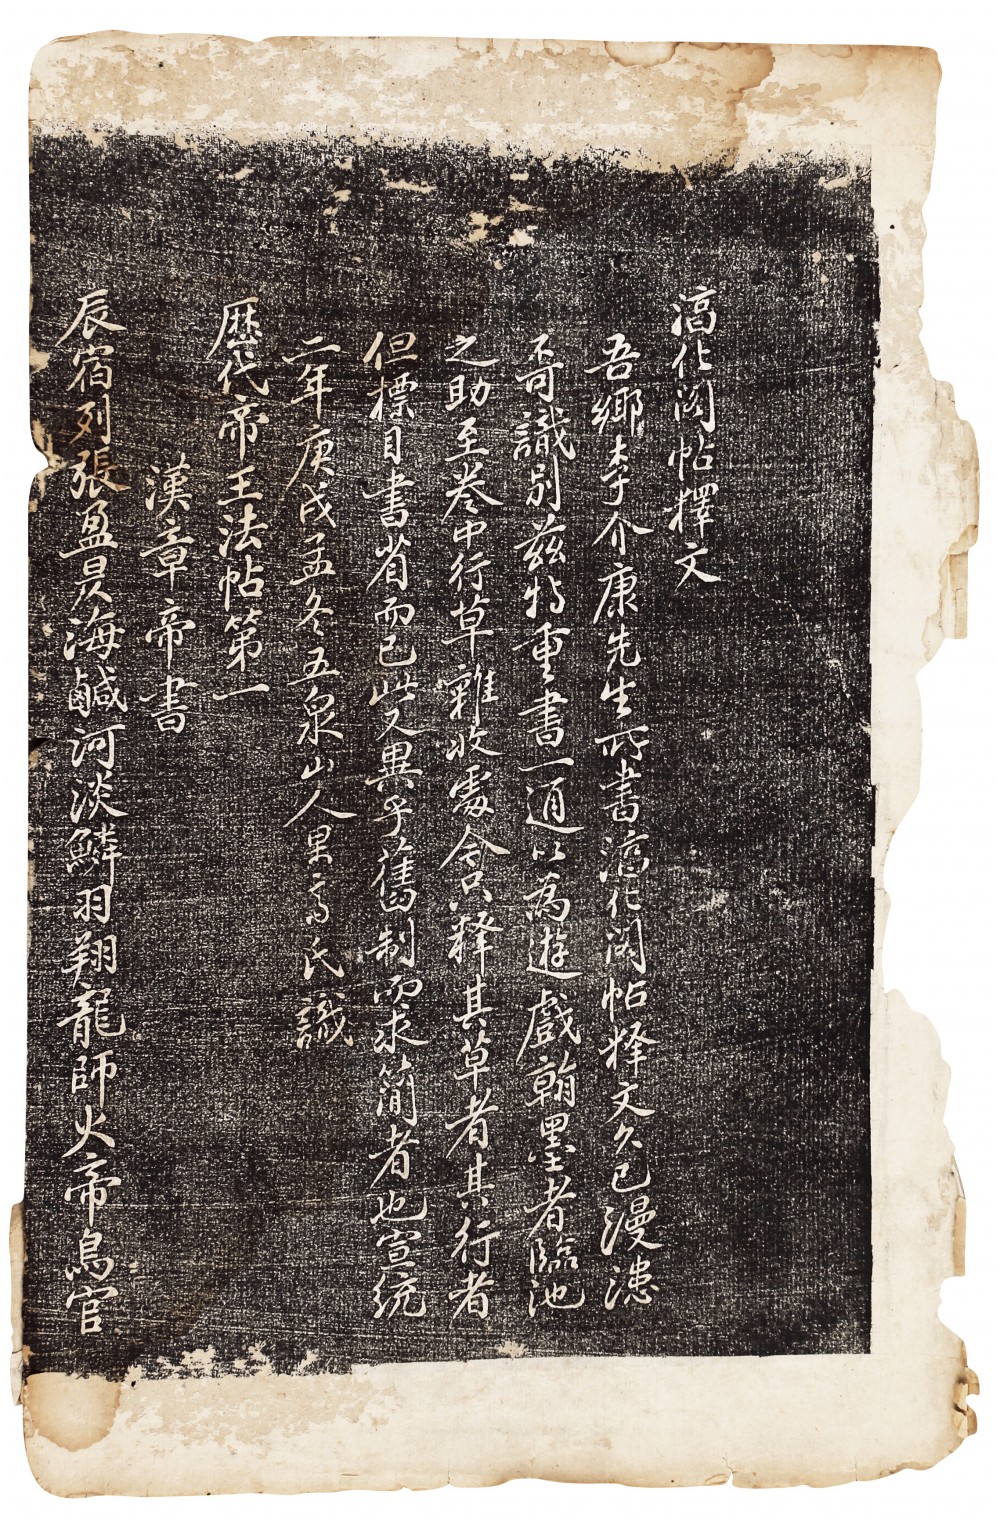 淳化閣帖釋文
吾鄉李介康先生所書淳化閣帖釋文久已漫漶
不可識別茲特重書一通以為遊戲翰墨者臨池
之助至卷中行草雜收處今只釋其草者其行者
但標目書省而已此又異乎舊制而求簡者也宣統
二年庚戌孟冬五泉山人果齋氏識
歷代帝王法帖第一
漢章帝書
辰宿列張盈昃海鹹河淡鱗羽翔龍師火帝鳥官